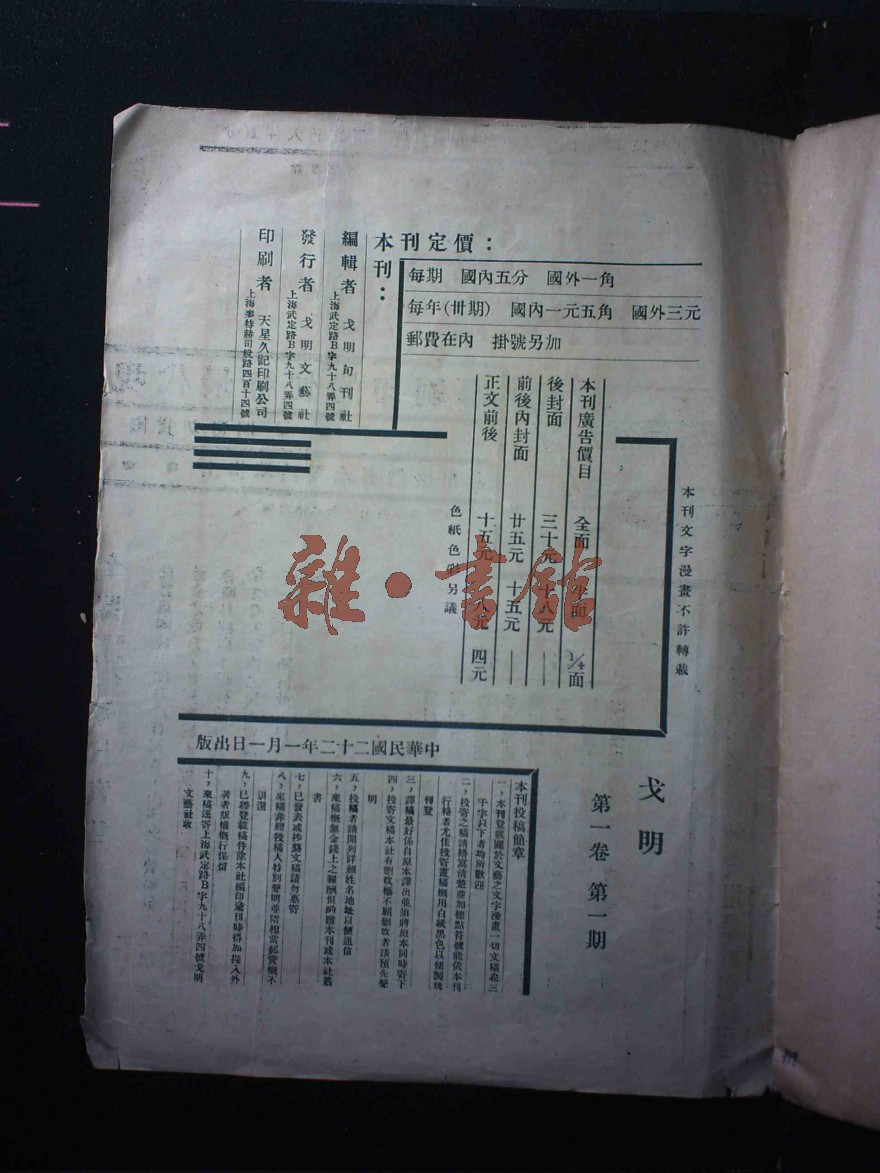 戈明
第一卷 第一期
本刊文字漫畫不許轉載
本刊定價：
每期 國內五分 國外一角
每年(卅期) 國內一元五角 國外三元
郵費在內 掛號另加
本刊：
編輯者 戈明旬刊社
上海武定路B字九十八弄四號
發行者 戈明文藝社
上海武定路B字九十八弄四號
印刷者 天星久記印刷公司
上海麥特赫司脫路四百十四號
本刊廣告價目 全面 半面 ¼面
後封面 三十元 十八元 —
前後內封面 廿五元 十五元 —
正文前後 十五元 八元 四元
色紙色彩另議
中華民國二十二年一月一日出版
本刊投稿簡章
一，本刊登載關於文藝之文字漫畫一切文稿在三
千字以下者均所歡迎
二，投寄之稿請繕寫清楚並加標點符號能依本刊
行格者尤佳投寄畫稿概用白紙黑色以便製版
刊登
三，譯稿最好係自原本譯出並須將原本同時寄下
四，投寄文稿本社有刪改權不願刪改者請預先聲
明
五，投稿者請開列詳細姓名地址以便通信
六，來稿概無金錢上之報酬但酌贈本刊或本社叢
書
七，已發表或抄襲文稿請勿惠寄
八，來稿非經投稿人特別聲明並附相當郵費概不
退還
九，已經登載稿件除本社編印叢刊時得加採入外
著者版權概行保留
十，來稿逕寄上海武定路B字九十八弄四號戈明
文藝社收
雜·書館